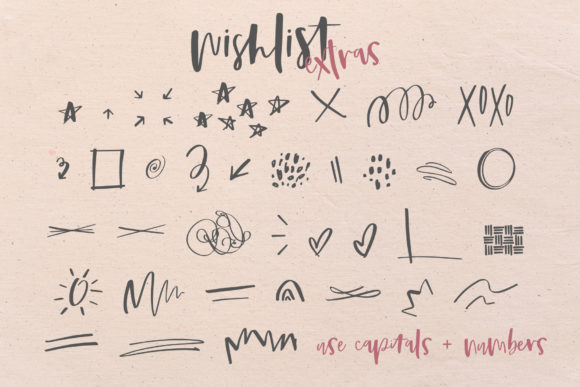 wishlist
extras
XOXO
use capitals + numbers